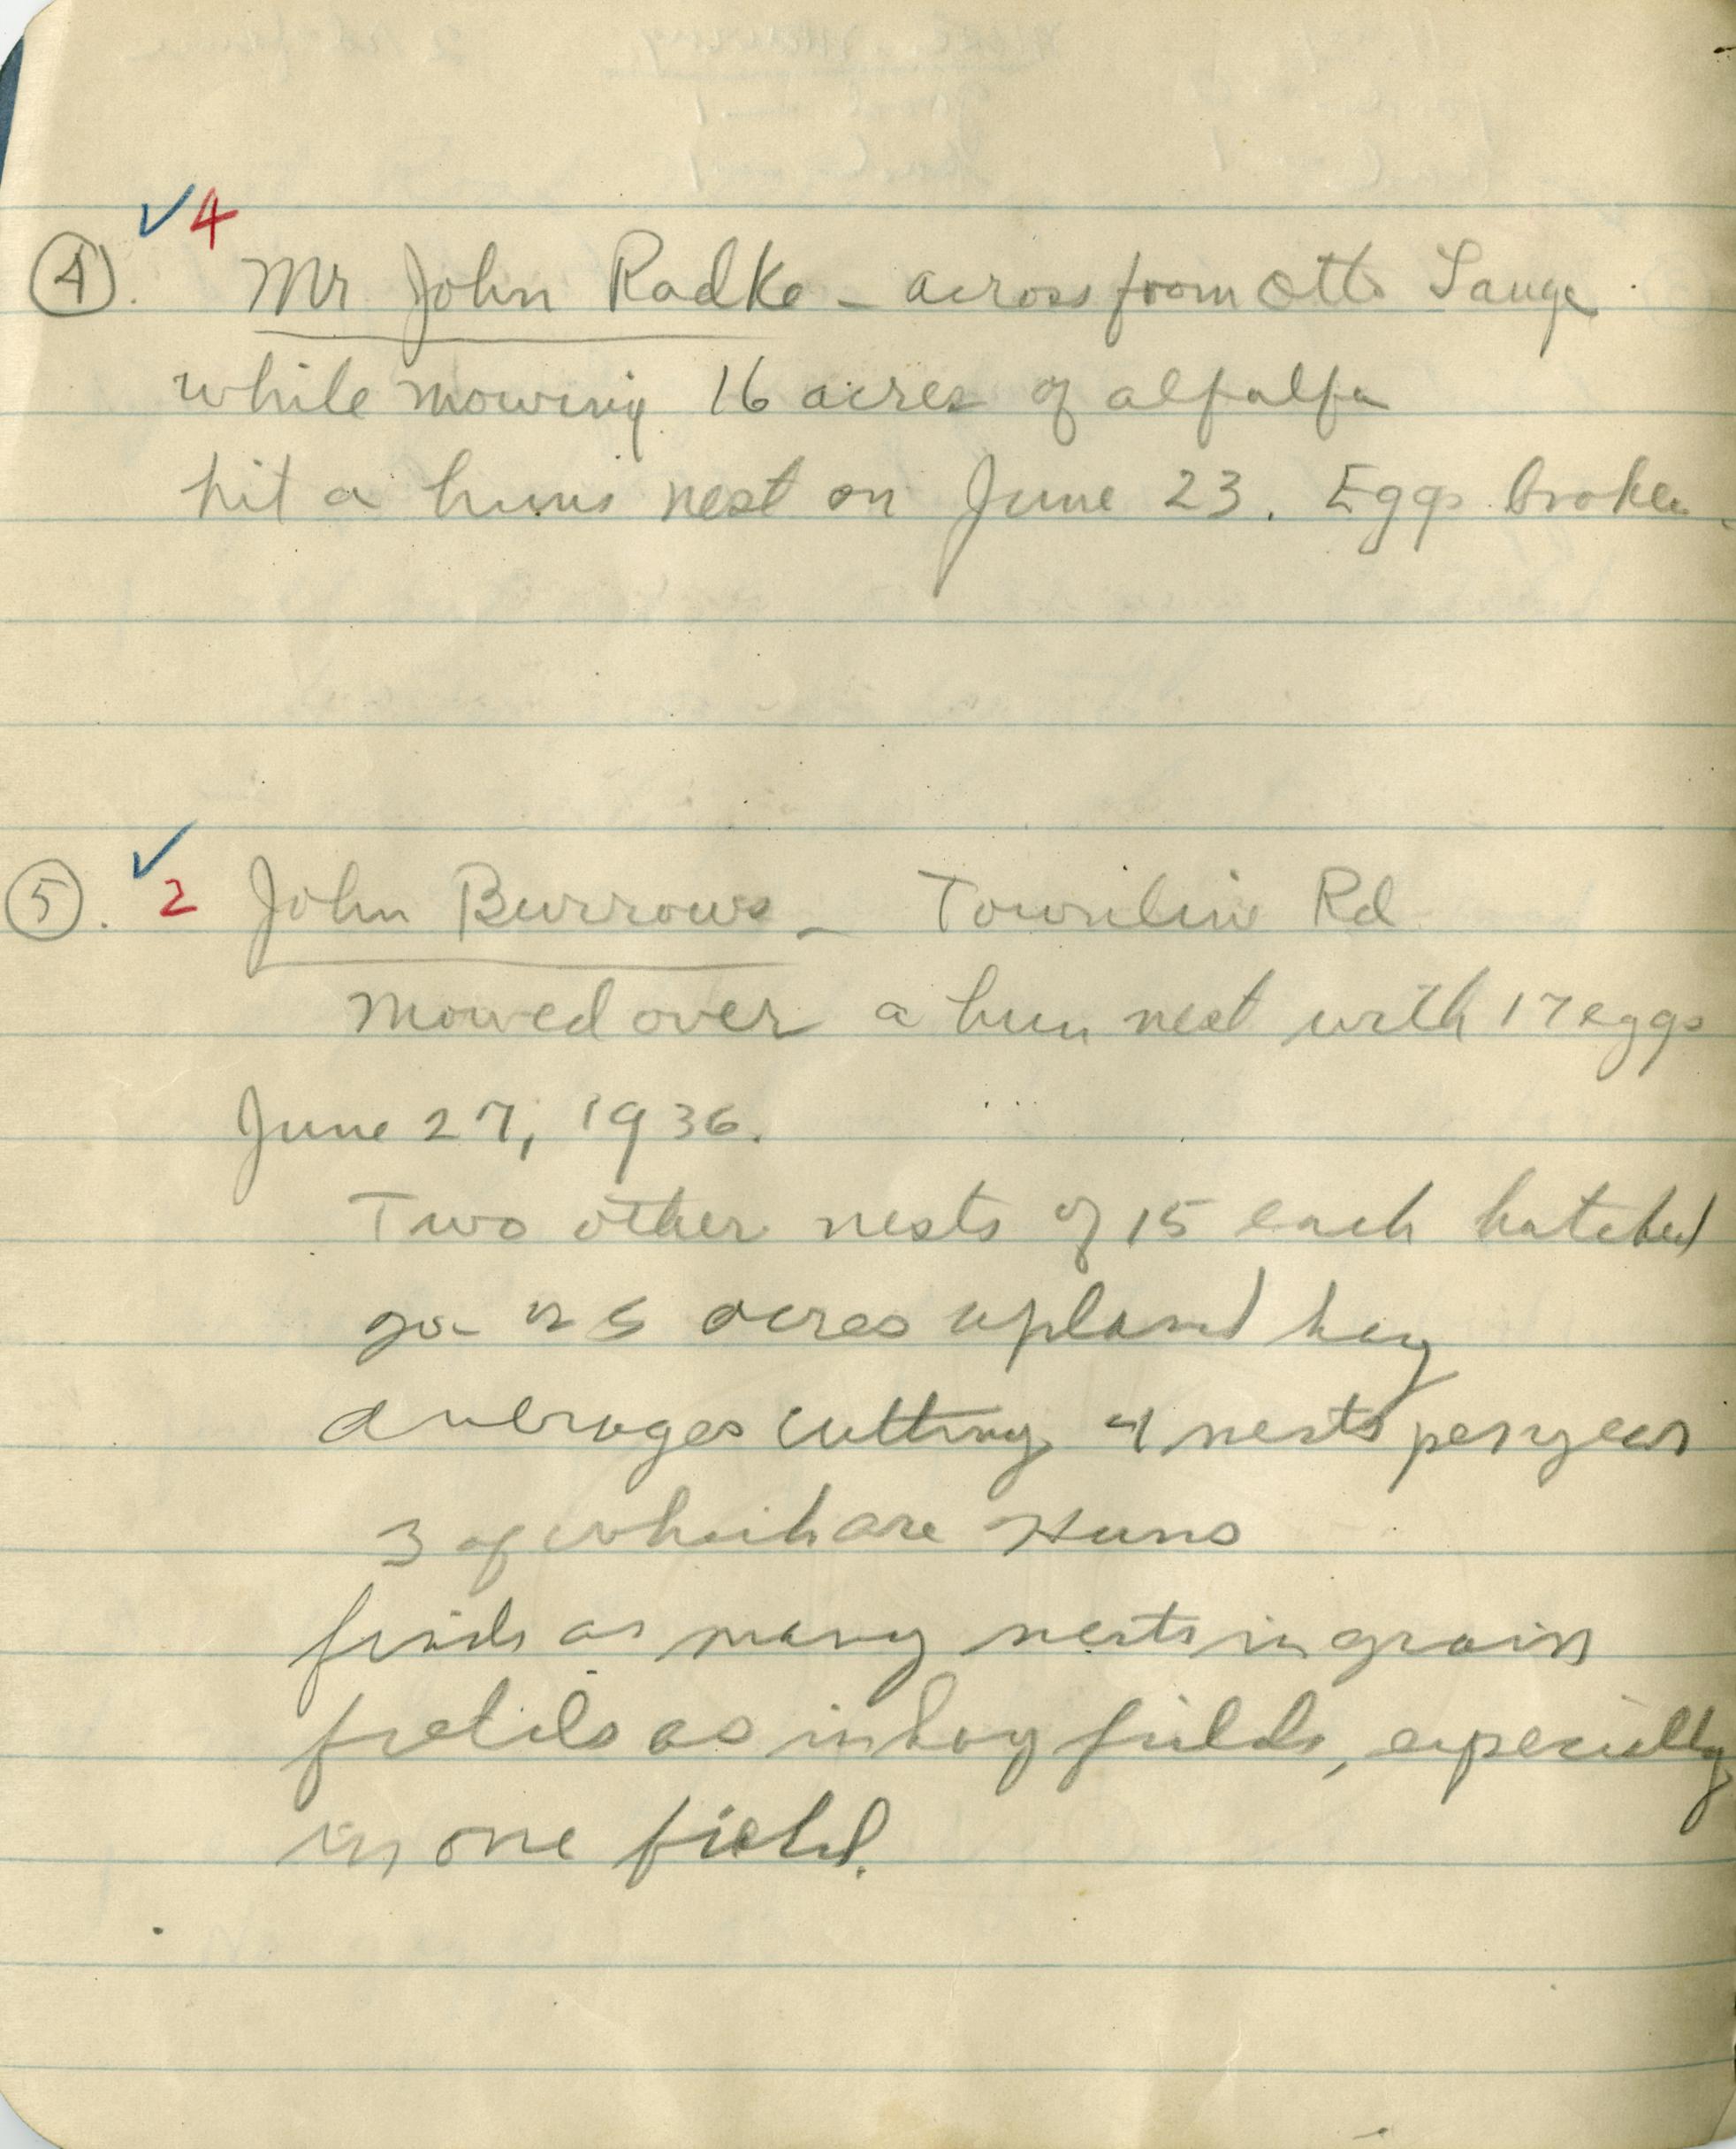 ✓ 4
④. Mr John Radke - across from Otto Lange
while mowing 16 acres of alfalfa
hit a huns nest on June 23. Eggs broken.
✓
⑤. 2 John Burrows - Townline Rd
Mowed over a hun nest with 17 eggs
June 27, 1936.
Two other nests of 15 each hatched
acres upland hay
averages cutting 4 nests per year
3 of which are Huns
finds as many nests in grain
fields as in hay fields, especially
in one field.